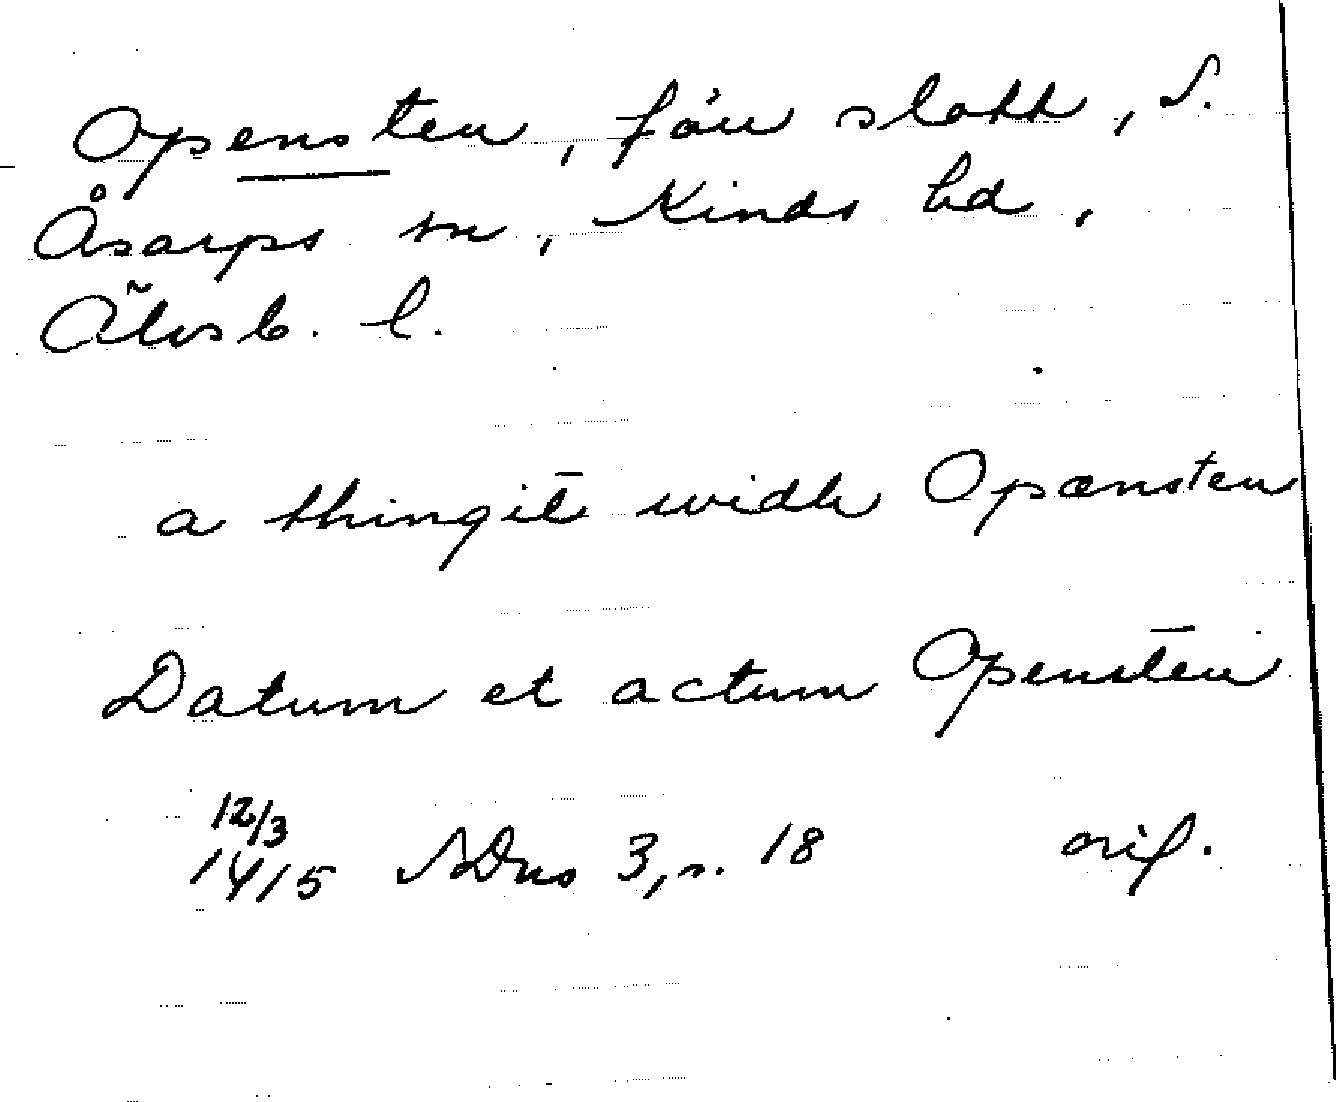 Opensten, förv slott, S.
Åsarps sn, Kinds hd,
Älvsb. l.
a thingit widh Opænsten
Datum et actum Opensten
12/3
1415 SDns 3, s. 18 orig.